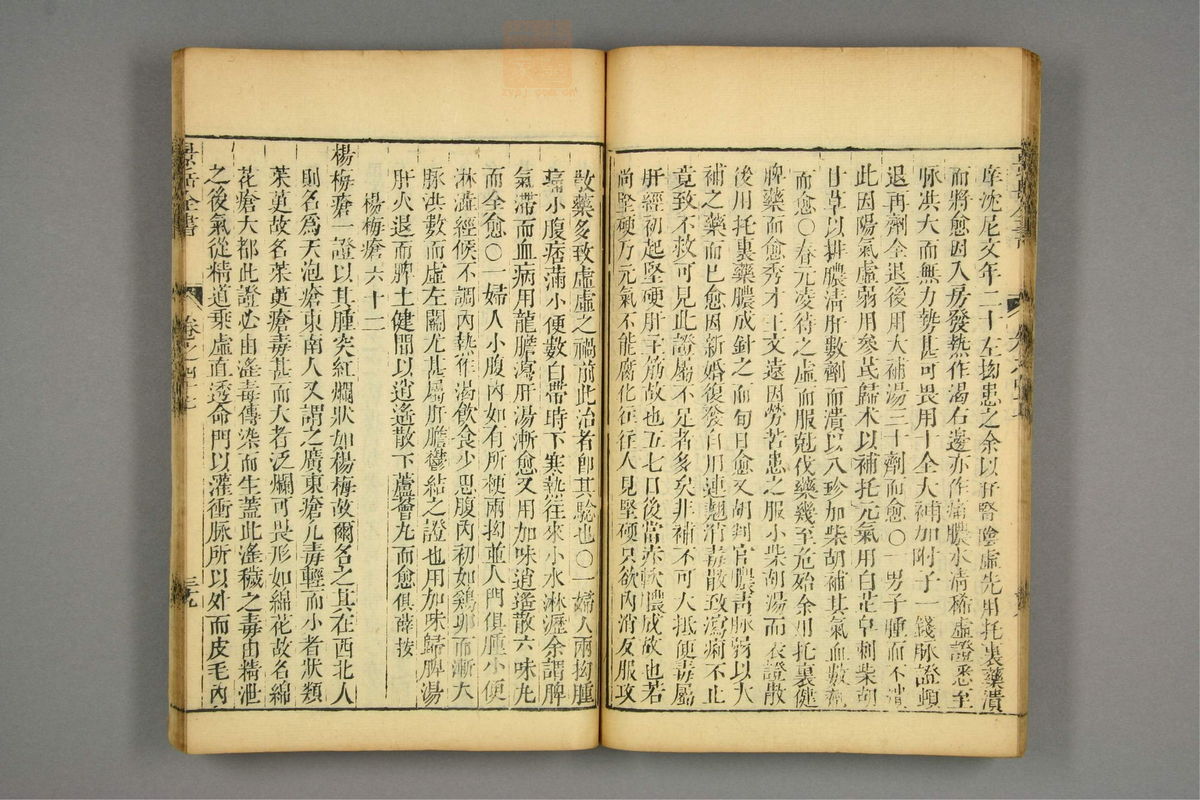 庠沈尼文年二十左拗患之余以肝腎陰虛先用托裏藥潰
而將愈因入房發熱作渴右邊亦作痛膿水清稀虛證悉至
脉洪大而無力勢甚可畏用十全大補加附子一錢脉證頓
退再劑全退後用大補湯三十劑而愈〇一男子腫而不潰
此因陽氣虛弱用參芪歸术以補托元氣用白芷皂刺柴胡
甘草以排膿清肝數劑而潰以八珍加柴胡補其氣血數劑
而愈〇春元凌待之虛而服尅伐藥幾至危殆余用托裏健
脾藥而愈秀才王文遠因勞苦患之服小柴胡湯而表證散
後用托裏藥膿成針之而旬日愈又胡判官膿清脉弱以大
補之藥而已愈因新婚復發自用連翹消毒散致瀉痢不止
竟致不救可見此證屬不足者多矣非補不可大抵便毒屬
肝經初起堅硬肝主筋故也五七日後當赤軟膿成故也若
尚堅硬乃元氣不能腐化往往人見堅硬只欲內消反服攻
散藥多致虛虛之禍前此治者即其驗也〇一婦人兩拗腫
痛小腹痞滿小便數白帶時下寒熱往來小水淋瀝余謂脾
氣滯而血病用龍膽瀉肝湯漸愈又用加味逍遙散六味丸
而全愈〇一婦人小腹內如有所梗兩拗並入門俱腫小便
淋瀝經候不調內熱作渴飲食少思腹內初如鷄卵而漸大
脉洪數而虛左關尤甚屬肝膽鬱結之證也用加味歸脾湯
肝火退而脾土健間以逍遙散下蘆薈丸而愈俱薛按
楊梅瘡六十二
楊梅瘡一證以其腫突紅爛狀如楊梅故爾名之其在西北人
則名爲天泡瘡東南人又謂之廣東瘡凡毒輕而小者狀類
茱萸故名茱萸瘡毒甚而大者泛爛可畏形如綿花故名綿
花瘡大都此證必由淫毒傳染而生蓋此淫穢之毒由精泄
之後氣從精道乘虛直透命門以灌衝脉所以外而皮毛內
景岳全書
卷之四十七
三九